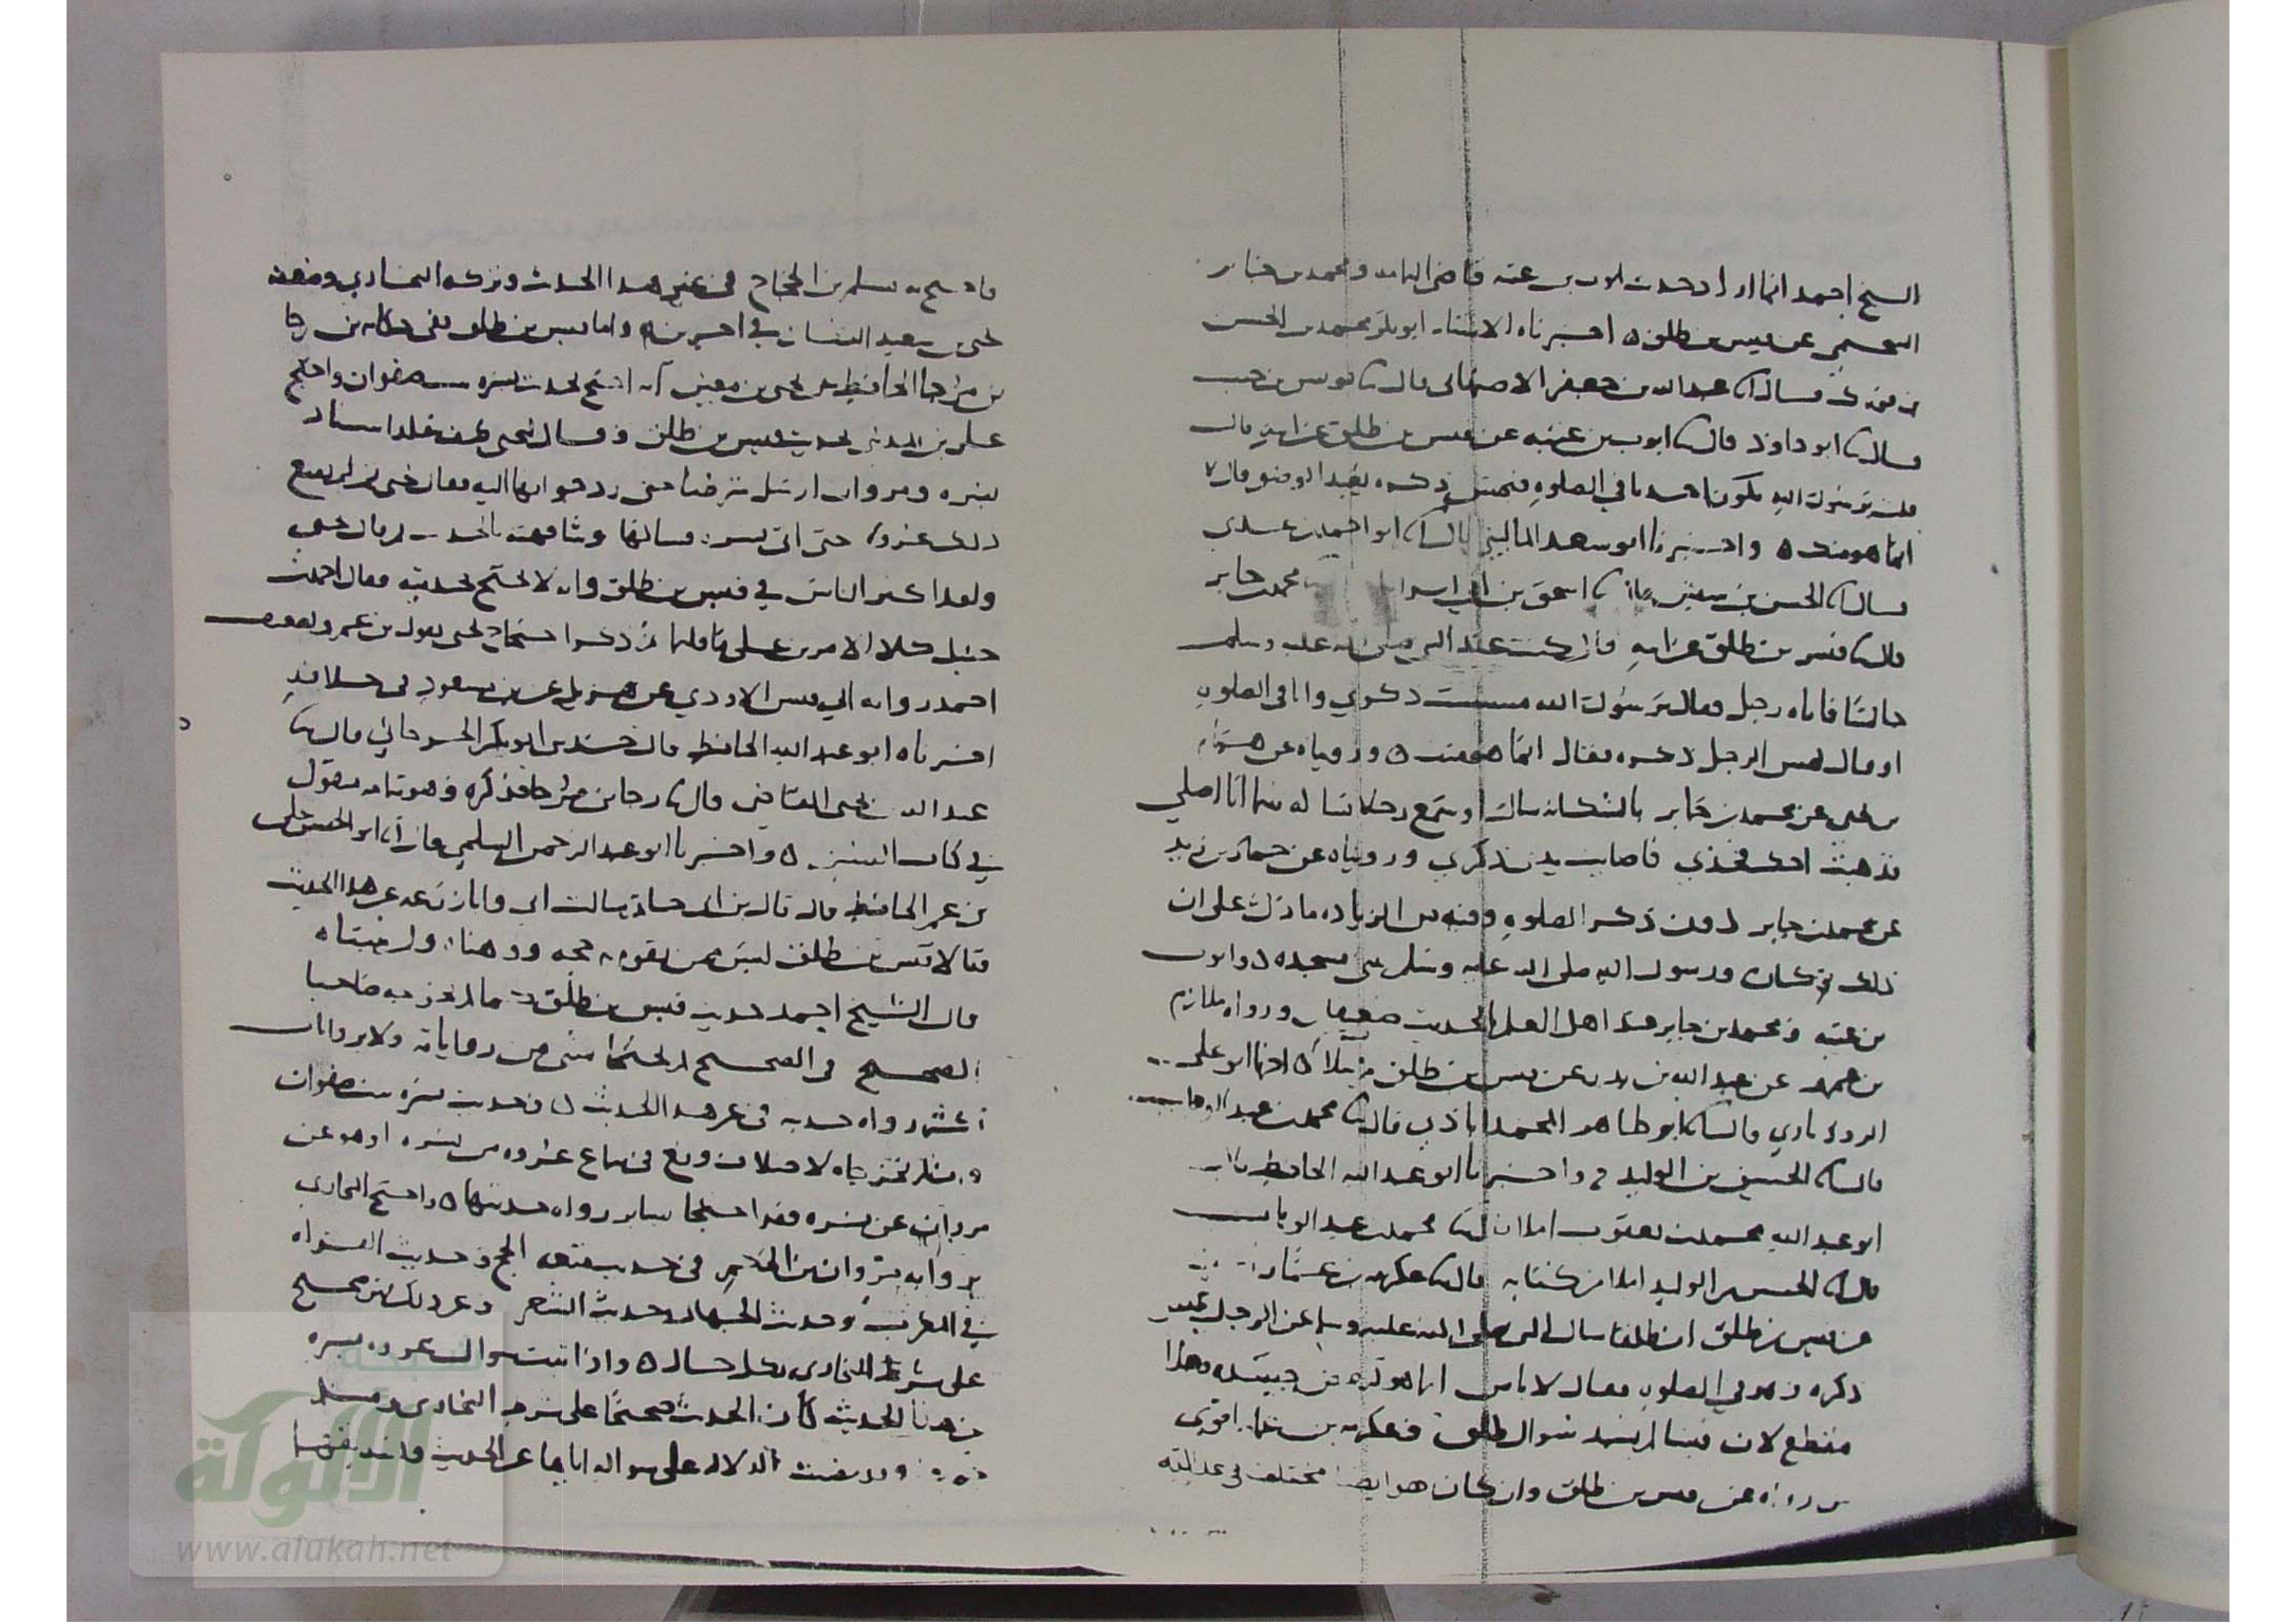 الشيخ احمد انما اراد حديث ايوب بن عتبة قاضي اليمامة ومحمد بن جابر
السحيمي عن قيس بن طلق ه اخبرناه الاستاذ ابو بكر محمد بن الحسن
بن فورك قال انا عبد الله بن جعفر الاصبهاني قال نا يونس بن حبيب
قال نا ابو داود قال نا ايوب بن عتبه عن قيس بن طلق عن ابيه قال
قلت يرسول الله يكون احدنا في الصلوه فيمس ذكره يعيد الوضو قال لا
انما هو منك ه واخبرنا ابو سعد الماليني قال انا ابو احمد بن عدي
قال نا الحسن بن سفين قال نا اسحق بن ابي اسرائيل نا محمد بن جابر
قال نا قيس بن طلق عن ابيه قال كنت عند النبي صلى الله عليه وسلم
جالسا فاتاه رجل فقال يرسول الله مسست ذكري وانا في الصلوه
او قال يمس الرجل ذكره فقال انما هو منك ه ورويناه عن همام
بن يحيى عن محمد بن جابر بالشك انه سال او سمع رجلا يساله بينما انا اصلي
فذهبت احك فخذي فاصابت يدي ذكري ورويناه عن حماد بن زيد
عن محمد بن جابر دون ذكر الصلوه وفيه من الزياده ما دل على ان
ذلك كان ورسول الله صلى الله عليه وسلم يبني مسجده ه وايوب
بن عتبه ومحمد بن جابر عند اهل العلم بالحديث ضعيفان ورواه ملازم
بن عمرو عن عبد الله بن بدر عن قيس بن طلق ه اخبرنا ابو علي
الروذباري قال نا ابو طاهر المحمداباذي قال نا محمد بن عبد الوهاب
قال نا الحسين بن الوليد ح واخبرنا ابو عبد الله الحافظ نا
ابو عبد الله محمد بن يعقوب املا نا محمد بن عبد الوهاب
قال نا الحسين بن الوليد املا من كتابه قال نا عكرمه بن عمار
عن قيس بن طلق ان طلقا سال النبي صلى الله عليه وسلم عن الرجل يمس
ذكره وهو في الصلوه فقال لا باس انما هو كبعض جسده وهذا
منقطع لان قيسا لم يشهد سوال طلق وعكرمه بن عمار اقوى
من رواه عن قيس بن طلق وان كان هو ايضا مختلف في عدالته
فاحتج به مسلم بن الحجاج في غير هذا الحديث وتركه البخاري وضعفه
يحيى بن سعيد القطان في اخرين ه واما قيس بن طلق ففي حكايه رجا
بن مرجا الحافظ عن يحيى بن معين انه احتج بحديث بسره بنت صفوان واحتج
علي بن المديني بحديث قيس بن طلق وقال ليحيى كيف تقلد اسناد
بسره ومروان ارسل شرطيا حتى رد جوابها اليه فقال يحيى ثم لم يقنع
ذلك عروه حتى اتى بسره فسالها وشافهته بالحديث ثم قال يحيى
ولقد اكثر الناس في قيس بن طلق وانه لا يحتج بحديثه فقال احمد بن
حنبل كلا الامرين على ما قلتما ثم ذكر احتجاج يحيى بقول بن عمر ودفعه
احمد روايه ابي قيس الاودي عن هزيل عن بن مسعود في خلافه
اخبرناه ابو عبد الله الحافظ قال حدثني ابو بكر الجراحي قال نا
عبد الله بن يحيى القاضي قال نا رجا بن مرجا فذكره وهو بتمامه منقول
في كتاب السنن ه واخبرنا ابو عبد الرحمن السلمي قال انا ابو الحسن علي
بن عمر الحافظ قال قال بن ابي حاتم سالت ابي وابا زرعه عن هذا الحديث
فقالا قيس بن طلق ليس ممن يقوم به حجه ووهناه ولم يثبتاه
قال الشيخ احمد حديث قيس بن طلق كما لم يخرجه صاحبا
الصحيح في الصحيح لم يحتجا بشي من رواياته ولا بروايات
اكثر رواه حديثه في غير هذا الحديث ه وحديث بسره بنت صفوان
وان لم يخرجاه لاختلاف وقع في سماع عروه من بسره او هو عن
مروان عن بسره فقد احتجا بساير رواه حديثها ه واحتج البخاري
بروايه مروان بن الحكم في حديث متعه الحج وحديث القراه
في المغرب وحديث الجهاد وحديث الشعر وغير ذلك فهو صحيح
على شرط البخاري بكل حال ه واذا ثبت سوال عروه بسره
عن هذا الحديث كان الحديث صحيحا على شرط البخاري ومسلم
وقد مضت الدلاله على سواله اياها عن الحديث وتصديقها